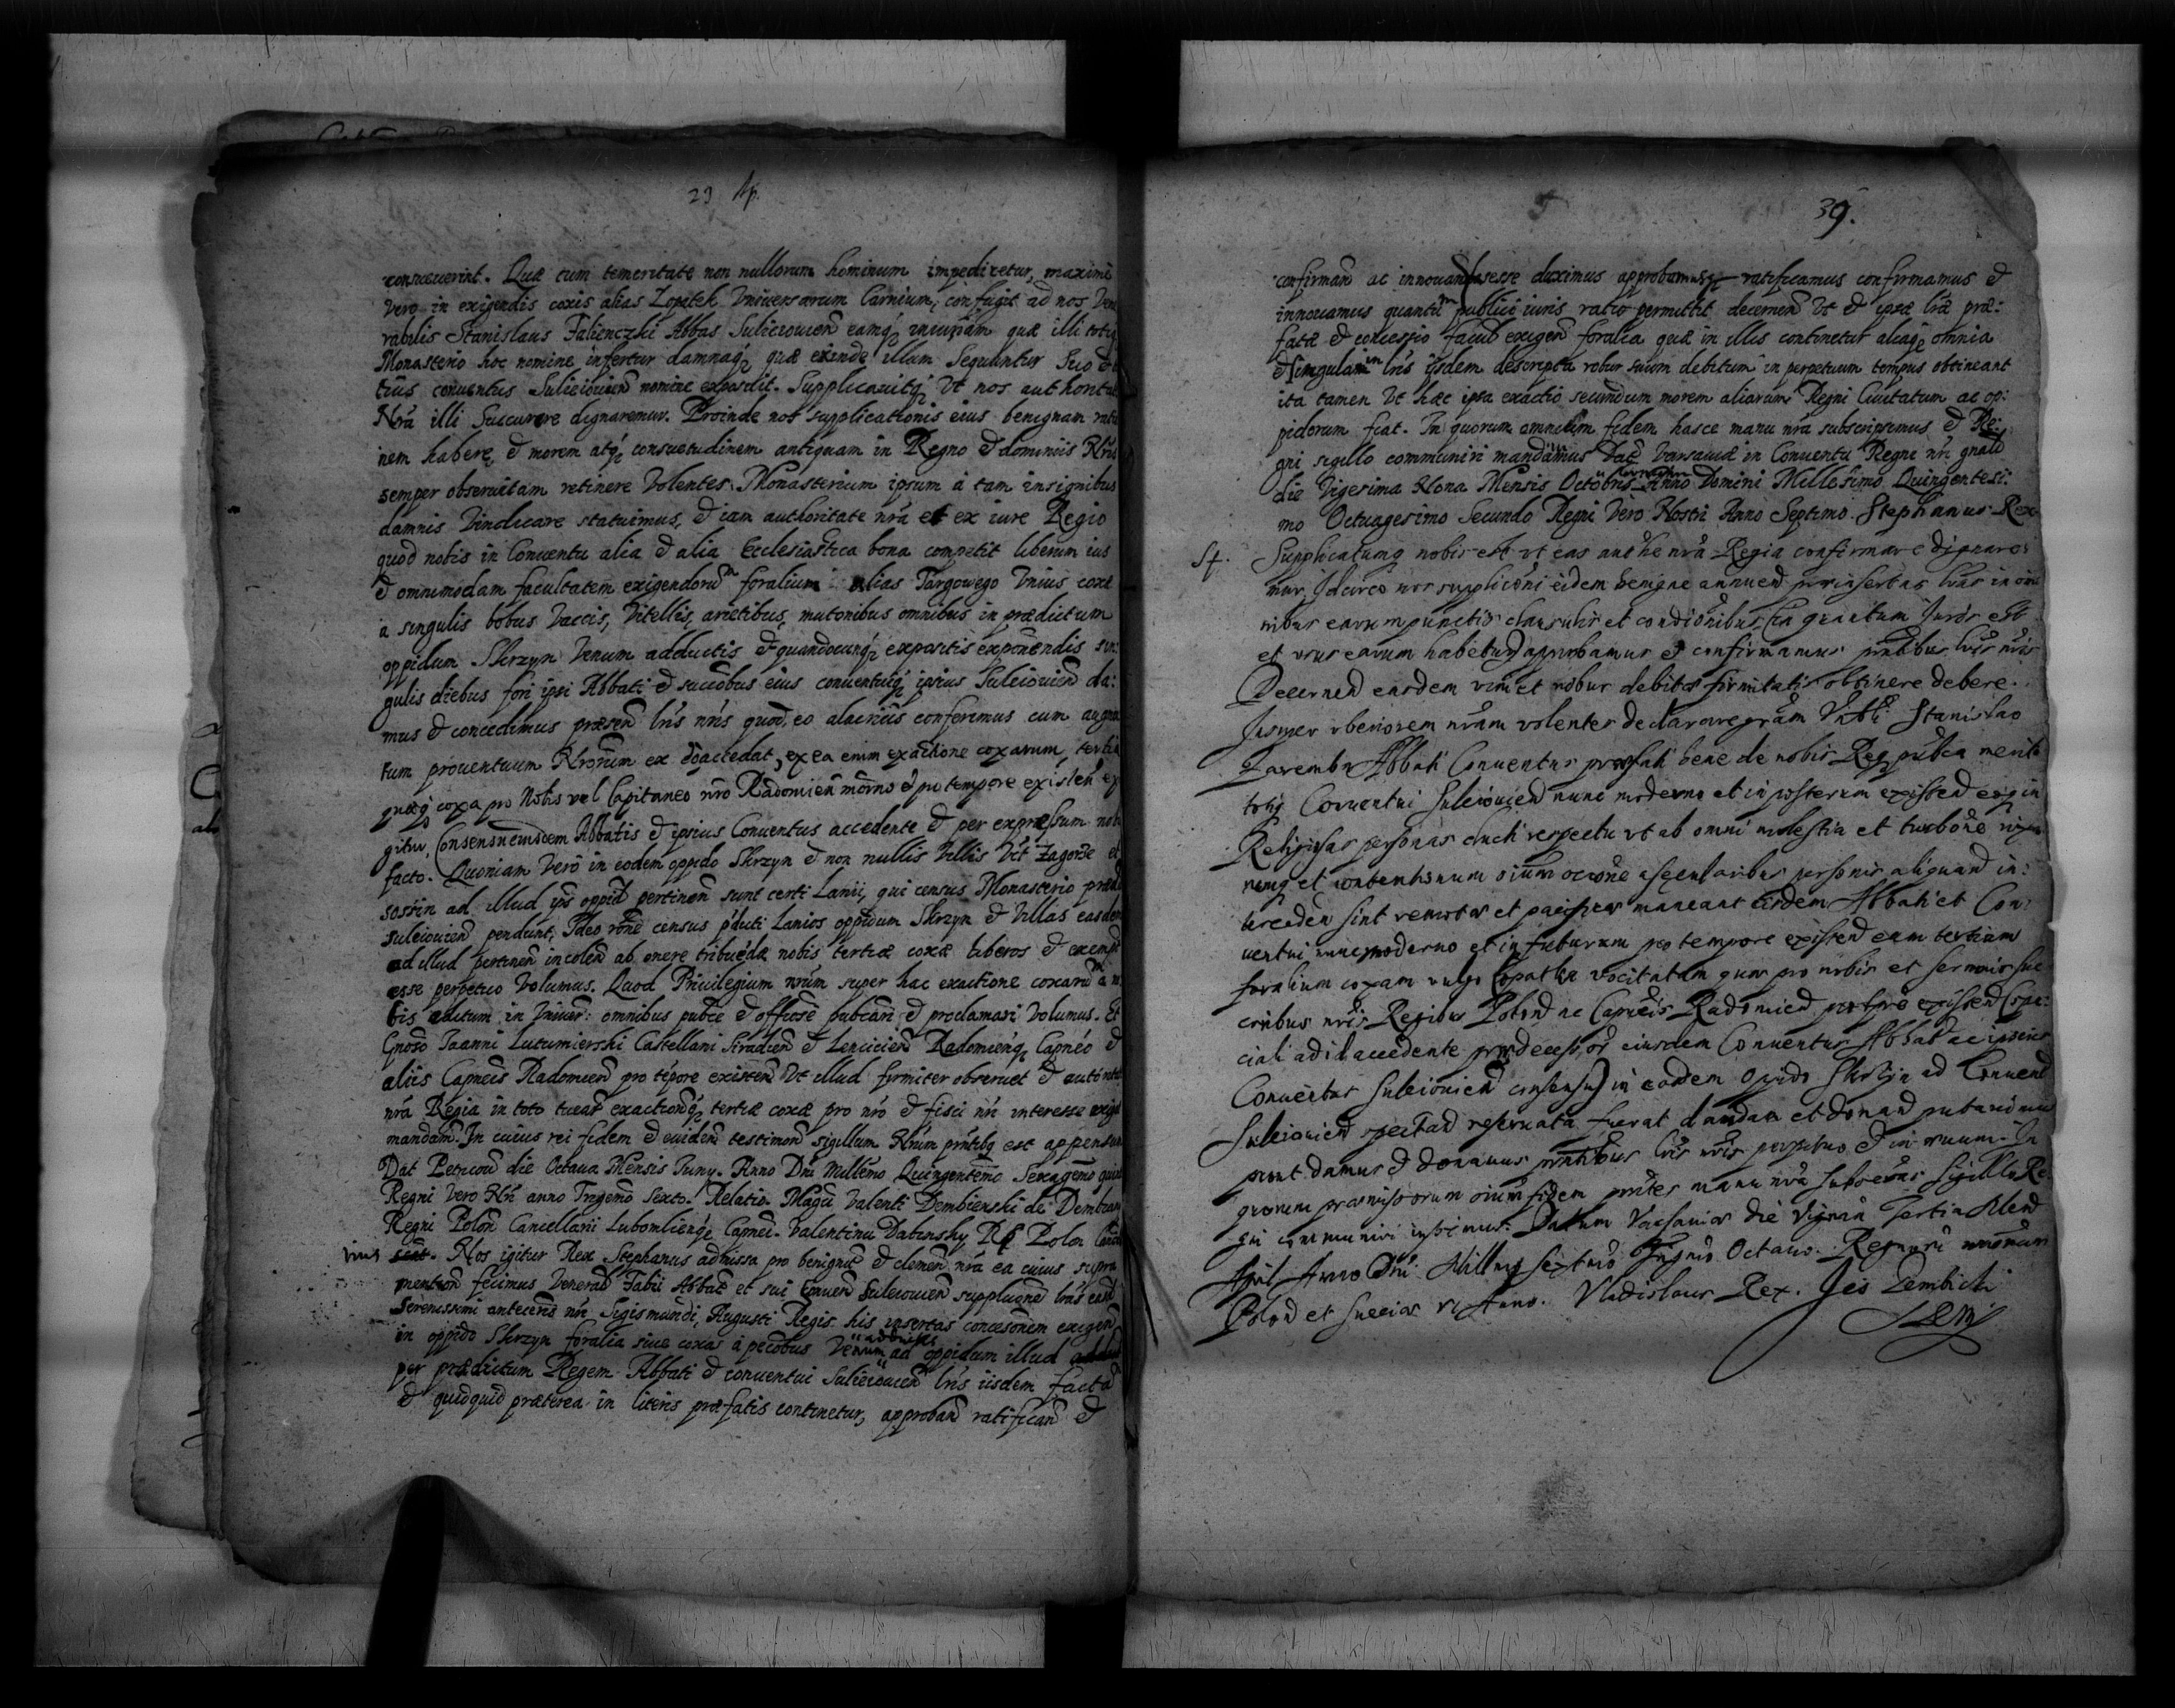 23
consueuerint. Quæ cum temeritate non nullorum hominum impediretur, maximè
vero in exigendis coxis alias Lopatek Vniuersarum Carnium, confugit ad nos Vene
rabilis Stanislaus Falienczki Abbas Suliciouień eamq; iniuriam quæ illi totiq;
Monasterio hoc nomine infertur damnaq; quæ exinde illum Sequuntur Suo et
tius conuentus Suliciouień nomine exposuit. Supplicauitq; Vt nos authoritate
Nrã illi Succurere dignaremur. Proinde nos supplicationis eius benignam ratio
nem habere, et morem atq; consuetudinem antiquam in Regno et dominiis Nris
semper obseruatam retinere Volentes. Monasterium ipsum à tam insignibus
damnis Vindicare statuimus, et iam authoritate nrã et ex iure Regio
quod nobis in Conuentu alia et alia Ecclesiastica bona competit liberum ius
et omnimodam facultatem exigendorũ foralium alias Targowego Vnius coxæ
à singulis bobus Vaccis, Vitellis, arietibus, mutonibus omnibus in prædictum
oppidum Skrzyn Venum adductis et quandocunq; expositis exponendis sin:
gulis diebus fori ipsi Abbati et succõbus eius conuentuiq; ipsius Suleiouień da:
mus et concedimus præsen̄ lrĩs nrĩs quod, eo alacriũs conferimus cum augmen
tum prouentuum Nrorum ex eo accedat, ex ea enim exactione coxarum, tertia
quæq; coxa pro Nobis vel Capitaneo nro Radomień mõrno et p tempore existeñ ex
gitur, Consensu eiusdem Abbatis et ipsius Conuentus accedente et per expressum nob
facto. Quoniam Verò in eodem oppido Skrzyn et non nullis Villis Vt Zagorze et
sossin ad illud ips oppid pertineñ sunt certi Lanii, qui census Monasterio præd
suleiouień pendunt, Ideo rõne census pducti Lanios oppidum Skrzyn et Villas easdem
ad illud pertineñ incoleñ ab onere tribuẽdæ nobis tertiæ coxæ liberos et exempt
esse perpetuo Volumus. Quod Priuilegium nrũm super hac exactione coxarũ a no
bis editum in Vniuer: omnibus pubce et officosẽ publicãri et proclamari Volumus. Et
Gnoso Joanni Lutumierski Castellani Siradień et Lenciciem Radomienq; Capneo et
aliis Capneis Radomień pro tẽpore existeñ Vt illud firmiter obseruet et autoritate
nrã Regia in toto tueat exactionẽq; tertiæ coxæ pro nro et fisci nri interesse exigat
mandam̃. In cuius rei fidem et euideñ testimoñ sigillum Nrũm pñtibq est appensum
Dat Petricou die Octaua Mensis Juny. Anno Dñi Millemo Quingentemo Sexagemo quin
Regni Vero Nri anno Trigemo Sexto. Relatio Magci Valenti Dembienski de Dembian
Regni Polon̄ Cancellarii Lubomlienq; Capnei. Valentinu Dabinsky R Polon Canc
Nos igitur Rex Stephanus admissa pro benignit et clemen̄ nrã ea cuius supra
mention fecimus Venerab̃ Fabii Abbat et sui Conueñ Suleiouień suppligne lrãs easd
Serenissimi antecessris nri Sigismundi, Augusti Regis his insertas concessionem exigeñ
in oppido Skrzyn foralia siue coxas à pecobus Venum ad oppidum illud
adductis
per prædictum Regem Abbati et conuentui Suliciouień lrĩs iisdem factã
et quidquid præterea in literis præfatis continetur, approbañ ratificañ et
39.
confirmañ ac innouan esse duximus approbamusq; ratificamus confirmamus et
innouamus quantũ publici iuris ratio permittit decerneñ Vt et ipsæ lræ præ:
fatæ et concessio facul exigeñ foralia quæ in illis continetur aliaq; omnia
et singula in lrĩs ijsdem descripta robur suum debitum in perpetuum tempus obtineant
ita tamen Vt hæc ipsa exactio secundum morem aliarum Regni Ciuitatum ac op:
pidorum fiat. In quorum omnium fidem hasce manu nrã subscripsimus et Re:
gni sigillo communiri mandauimus Dat̃ Varsauiæ in Conuentu Regni nri gnali
die Vigesima Nona Mensis Octobris Anno Domini Millesimo Quingentesi:
mo Octuagesimo Secundo Regni Vero Nostri Anno Septimo. Stephanus Rex
Supplicatumq nobis est vt eas authe nrã Regia confirmare dignare:
mur, Idcirco nos supplicõni eidem benigne annueñ præinsertas lrãs in om
nibus earum punctis clausulis et condiõnibus quantum Juris est
et vsus earum habetur approbamus et confirmamus pñtibus lrĩs nris
Decerneñ easdem vim et robur debitæ firmitatis obtinere debere.
Insuper vberiorem nrãm volentes declarare grãm Vnbli Stanislao
Zaremba Abbati Conuentus præfati bene de nobis Req publca merito
totiq Conuentui Suleiouień nunc moderno et in posterum existeñ eoq in
Religiosas personas ducti respectu vt ab omni molestia et turbõne
remq et contentionum oium occõne a secularibus personis aliquand in:
terceden̄ sint remotæ et pacificæ maneant eidem Abbati et Con
uentui nunc moderno et in futurum pro tempore existeñ eam tertiam
foralium coxam vulgo Lopatka vocitatam quæ pro nobis et sermis suc
cessribus nris Regibus Poloñ ac Capneis Radomień pro tpre existeñ spe:
ciali ad id accedente prædecessoris eiusdem Conuentus Abbat ac ipsius
Conuentus Suleiouień consensu in eodem oppido Skrzin ad Conuent
Suleiouień spectañ reseruata fuerat dandam et donand putauimus
prout damus et donamus pñtibus lrĩs nris perpetuo et in æuum. In
quorum præmissorum oium fidem pñtes manu nrã subscrãs Sigillo Re
gni communiri iussimus. Datum Varsauiæ die Vigesĩma Tertia Mens
April Anno Dñi Millmo Sextmo Trigmo Octauo. Regnorũ nrorum
Polon et Sueciæ vi Anno. Vladislaus Rex. Jes Zembicki